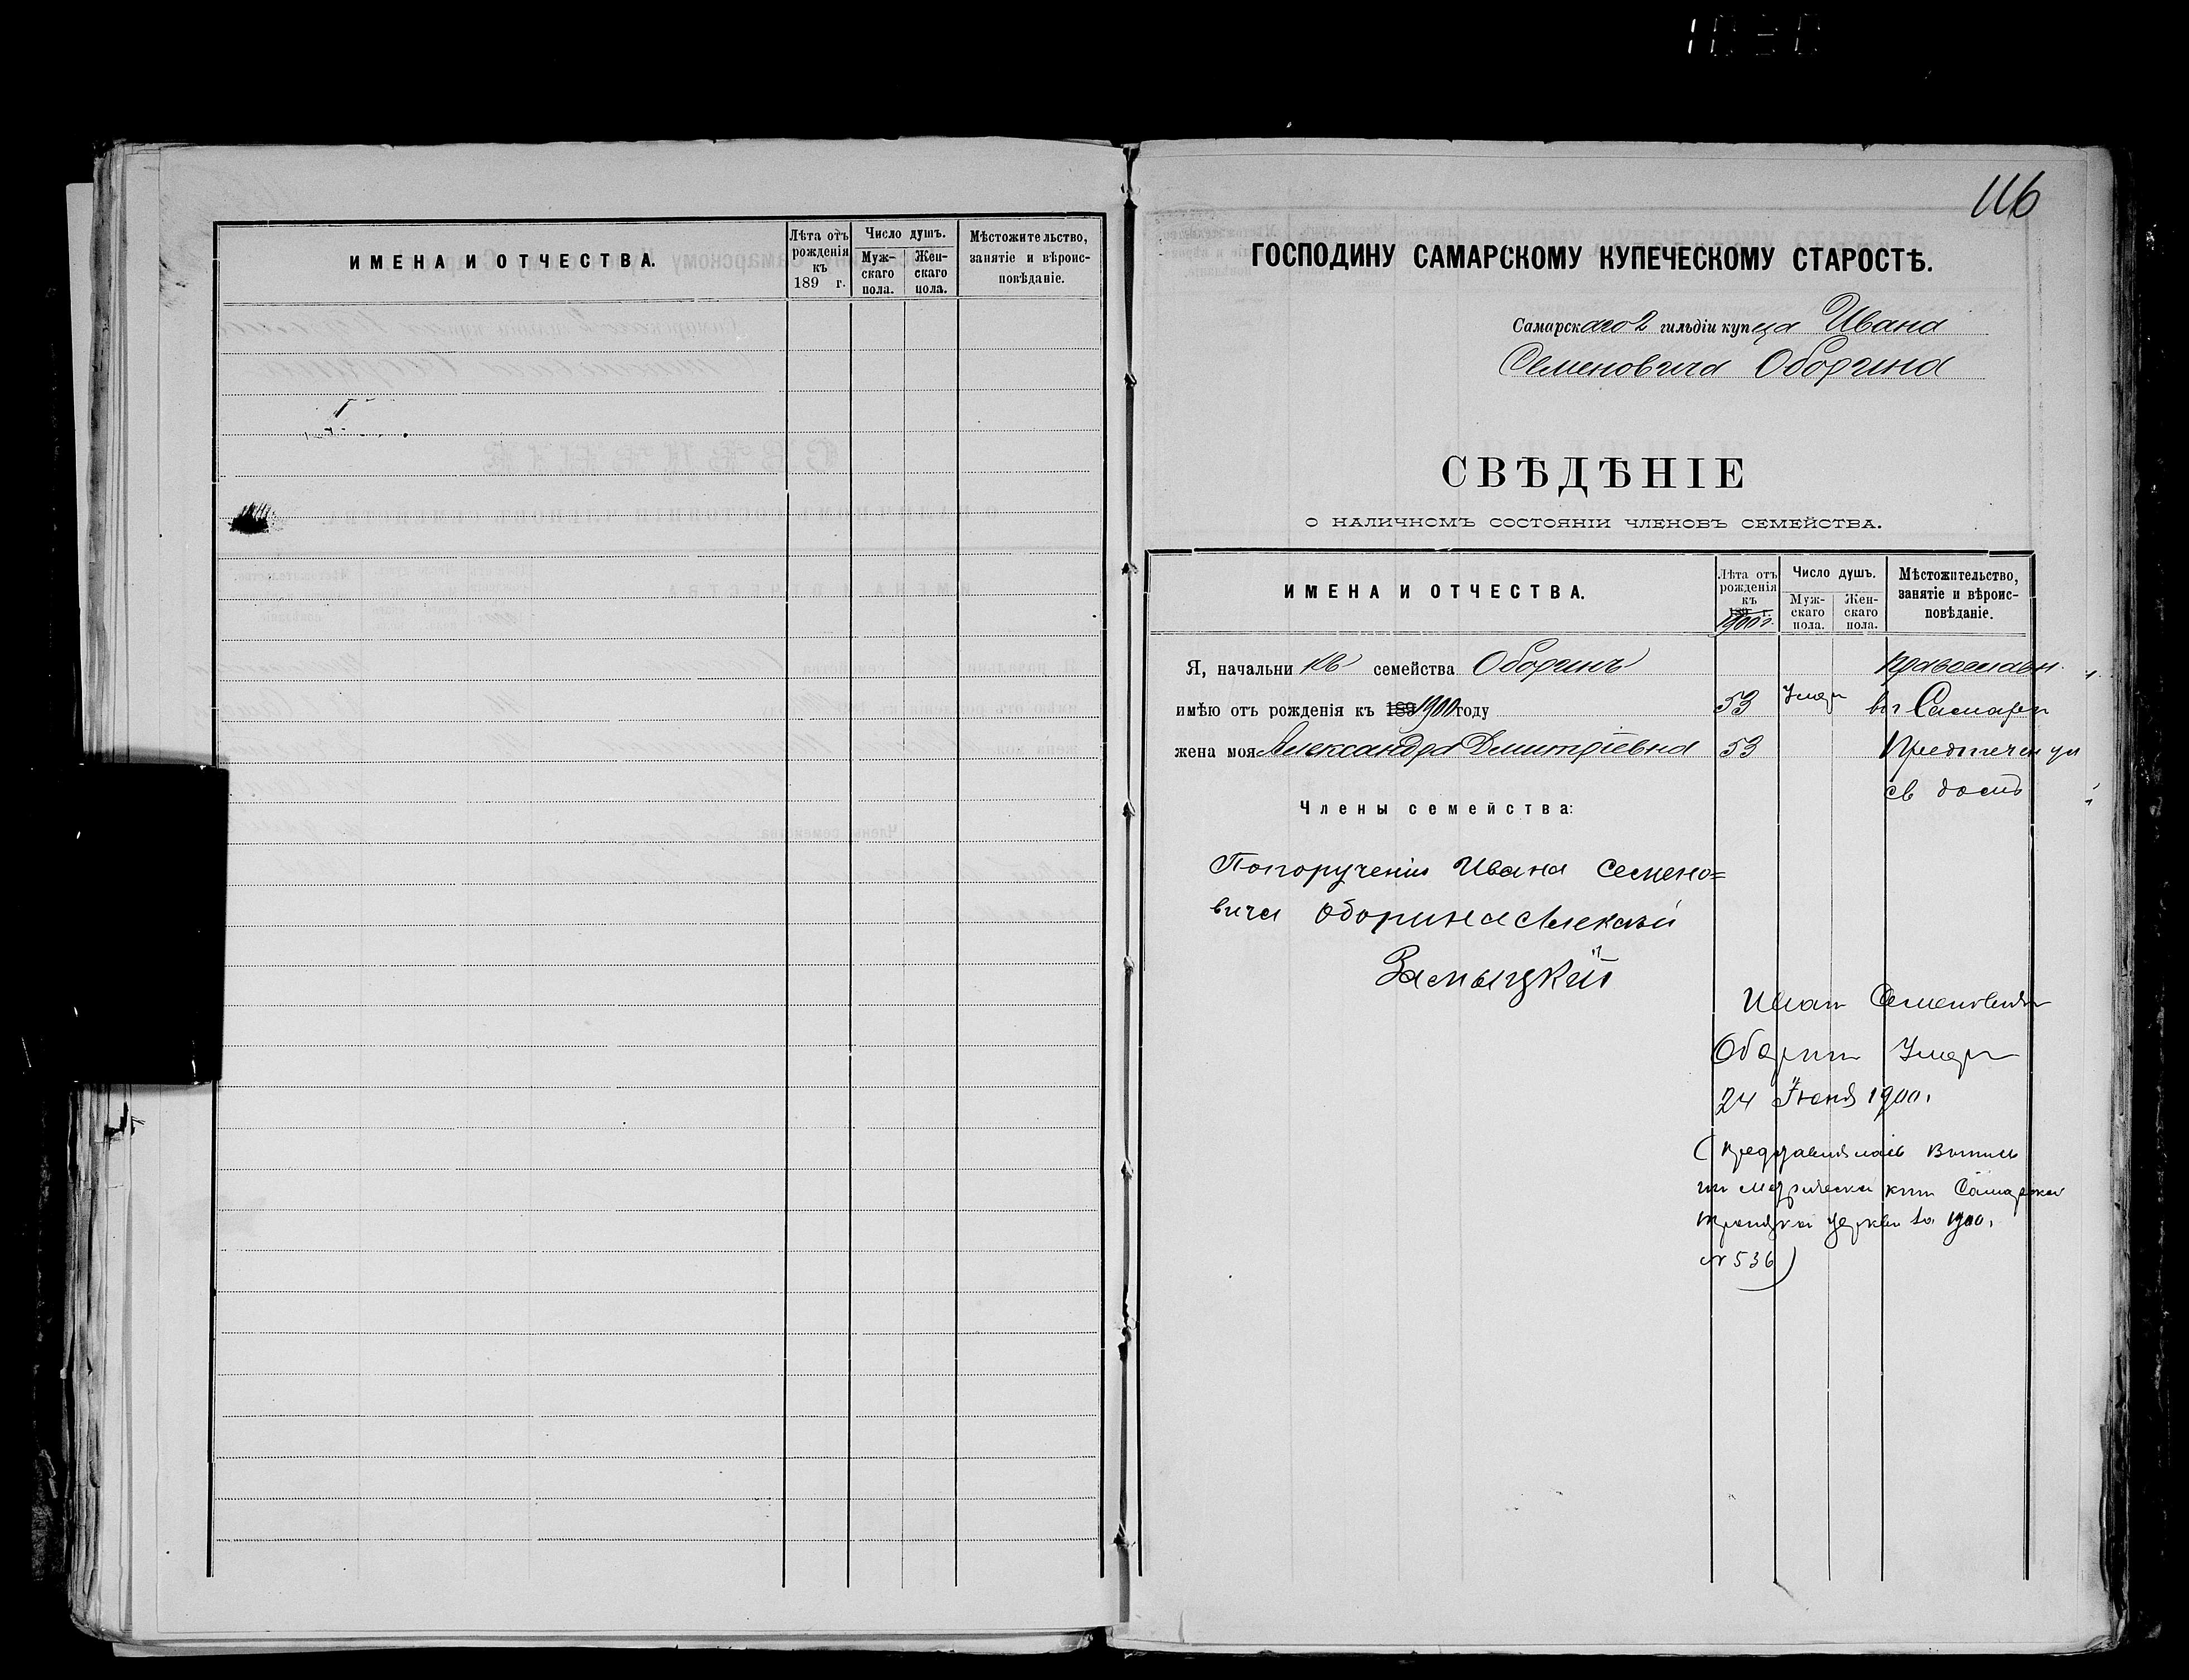 ИМЕНА И ОТЧЕСТВА.
Лѣта отъ рожденія къ 189 г.
Число душъ.
Мужскаго пола.
Женскаго пола.
Мѣстожительство, занятіе и вѣроисповѣданіе.
116
ГОСПОДИНУ САМАРСКОМУ КУПЕЧЕСКОМУ СТАРОСТѢ.
Самарскаго 2 гильдіи купца Ивана
Семеновича Оборина
СВѢДѢНІЕ
О НАЛИЧНОМЪ СОСТОЯНІИ ЧЛЕНОВЪ СЕМЕЙСТВА.
ИМЕНА И ОТЧЕСТВА.
Лѣта отъ
рожденія
къ
189 г.
1900 г.
Число душъ.
Муж-
скаго
пола.
Жен-
скаго
пола.
Мѣстожительство,
занятіе и вѣроис-
повѣданіе.
Я, начальникъ семейства Оборинъ православн.
имѣю отъ рожденія къ 189 1900 году 53 Умеръ въ г Самарѣ
жена моя Александра Дмитріевна 53 Предтечен ул
св домъ
Члены семейства:
По порученію Ивана Семено=
вича Оборина Алексѣй
Замыцкій
Иванъ Семеновичъ
Оборинъ Умеръ
24 Іюня 1900.
(представлялась выпись
изъ метрическ книги Самарской
Троицкой церкви за 1900.
№ 536)